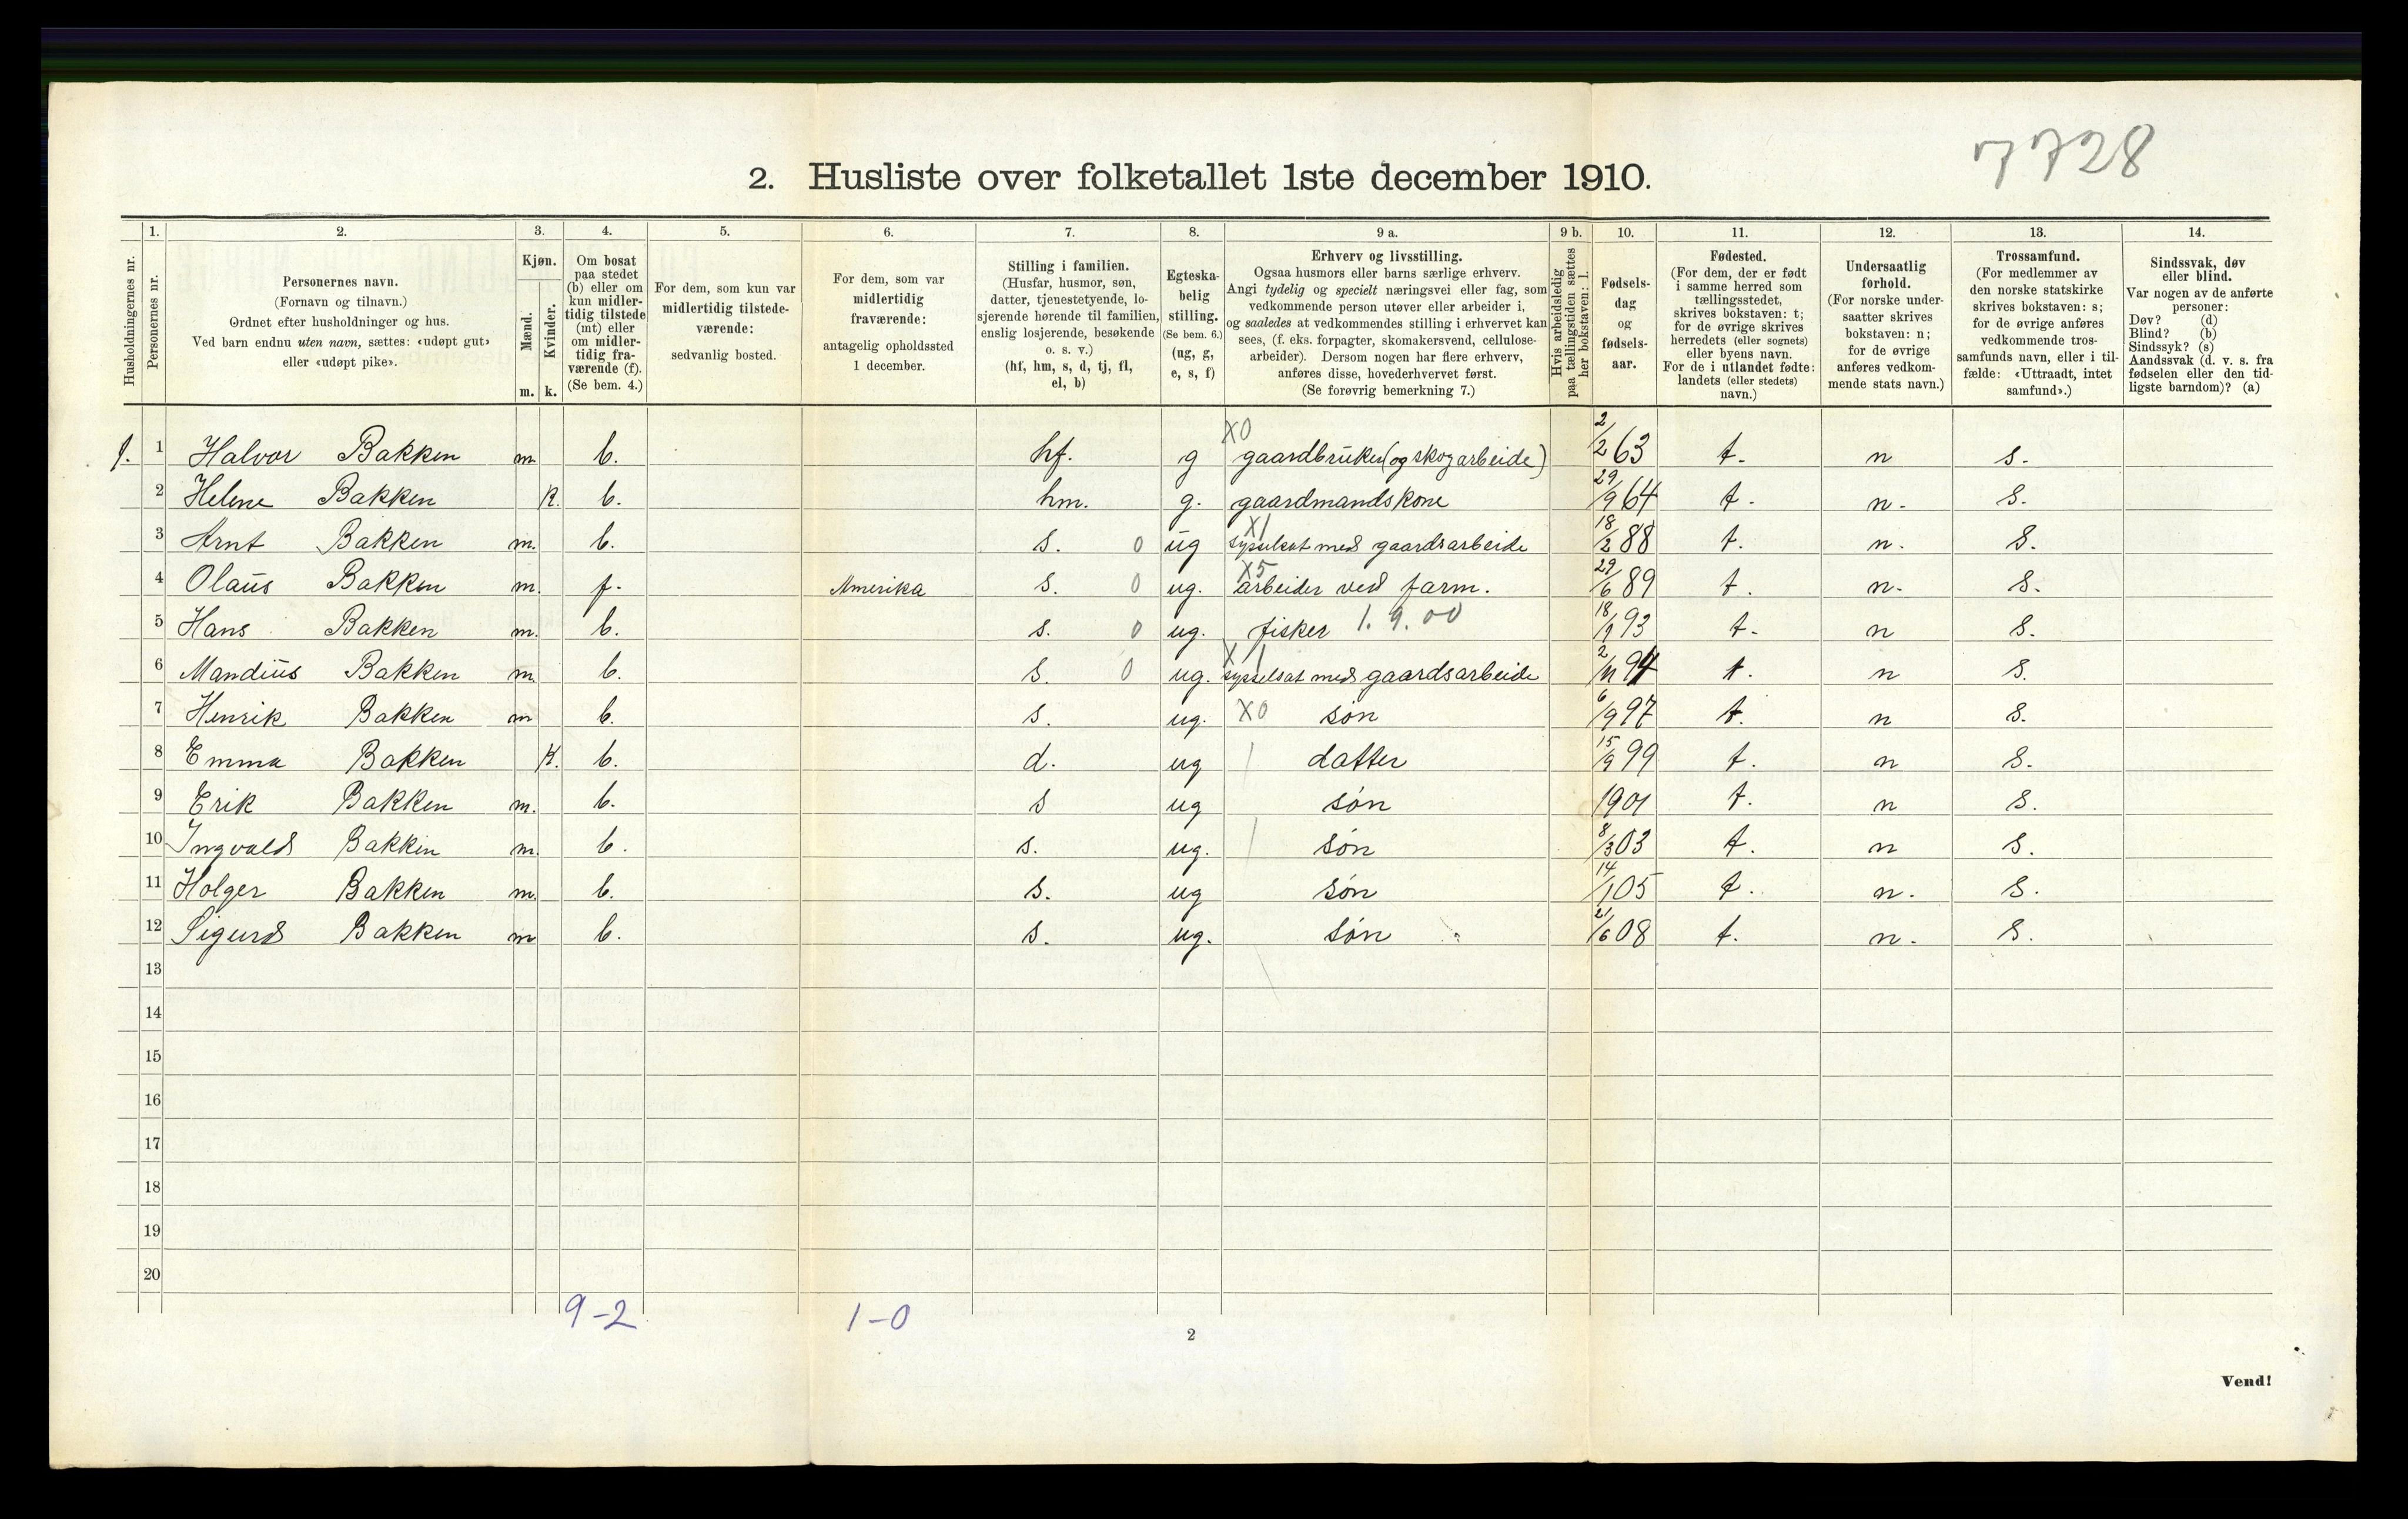 7728
2. Husliste over folketallet 1ste december 1910.
Husholdningernes nr.
1. Personernes nr.
2. Personernes navn.
(Fornavn og tilnavn.)
Ordnet efter husholdninger og hus.
Ved barn endnu uten navn, sættes: «udøpt gut»
eller «udøpt pike».
3. Kjøn.
Mænd. Kvinder.
m. k.
4. Om bosat
paa stedet
(b) eller om
kun midler-
tidig tilstede
(mt) eller
om midler-
tidig fra-
værende (f).
(Se bem. 4.)
5. For dem, som kun var
midlertidig tilstede-
værende:
sedvanlig bosted.
6. For dem, som var
midlertidig
fraværende:
antagelig opholdssted
1 december.
7. Stilling i familien.
(Husfar, husmor, søn,
datter, tjenestetyende, lo-
sjerende hørende til familien,
enslig losjerende, besøkende
o. s. v.)
(hf, hm, s, d, tj, fl,
el, b)
8. Egteska-
belig
stilling.
(Se bem. 6.)
(ug, g,
e, s, f)
9 a. Erhverv og livsstilling.
Ogsaa husmors eller barns særlige erhverv.
Angi tydelig og specielt næringsvei eller fag, som
vedkommende person utøver eller arbeider i,
og saaledes at vedkommendes stilling i erhvervet kan
sees, (f. eks. forpagter, skomakersvend, cellulose-
arbeider). Dersom nogen har flere erhverv,
anføres disse, hovederhvervet først.
(Se forøvrig bemerkning 7.)
9 b. Hvis arbeidsledig
paa tællingstiden sættes
her bokstaven: l.
10. Fødsels-
dag
og
fødsels-
aar.
11. Fødested.
(For dem, der er født
i samme herred som
tællingsstedet,
skrives bokstaven: t;
for de øvrige skrives
herredets (eller sognets)
eller byens navn.
For de i utlandet fødte:
landets (eller stedets)
navn.)
12. Undersaatlig
forhold.
(For norske under-
saatter skrives
bokstaven: n;
for de øvrige
anføres vedkom-
mende stats navn.)
13. Trossamfund.
(For medlemmer av
den norske statskirke
skrives bokstaven: s;
for de øvrige anføres
vedkommende tros-
samfunds navn, eller i til-
fælde: «Uttraadt, intet
samfund».)
14. Sindssvak, døv
eller blind.
Var nogen av de anførte
personer:
Døv? (d)
Blind? (b)
Sindssyk? (s)
Aandssvak (d. v. s. fra
fødselen eller den tid-
ligste barndom)? (a)
1. 1 Halvor Bakken m. b. hf. g X0 gaardbruker (og skogarbeide) 2/2 63 t. n s.
2 Helene Bakken k. b. hm. g. gaardmandskone 29/9 64 t. n. s.
3 Arnt Bakken m. b. s. 0 ug X1 sysselsat med gaardsarbeide 18/2 88 t. n. s.
4 Olaus Bakken m. f. Amerika s. 0 ug. X5 arbeider ved farm. 29/6 89 t. n. s.
5 Hans Bakken m. b. s. 0 ug. fisker 1.9.00 18/9 93 t. n s.
6 Mandius Bakken m. b. s. 0 ug. X1 sysselsat med gaardsarbeide 2/11 94 t. n s.
7 Henrik Bakken m b. s. ug. X0 søn 6/9 97 t. n s.
8 Emma Bakken k. b. d. ug datter 15/9 99 t. n s.
9 Erik Bakken m. b. s ug søn 1901 t. n s.
10 Ingvald Bakken m. b. s. ug. søn 8/3 03 t. n s.
11 Holger Bakken m. b. s. ug søn 14/1 05 t. n. s.
12 Sigurd Bakken m b. s. ug. søn 21/6 08 t. n. s.
13
14
15
16
17
18
19
20
9-2 1-0
2
Vend!